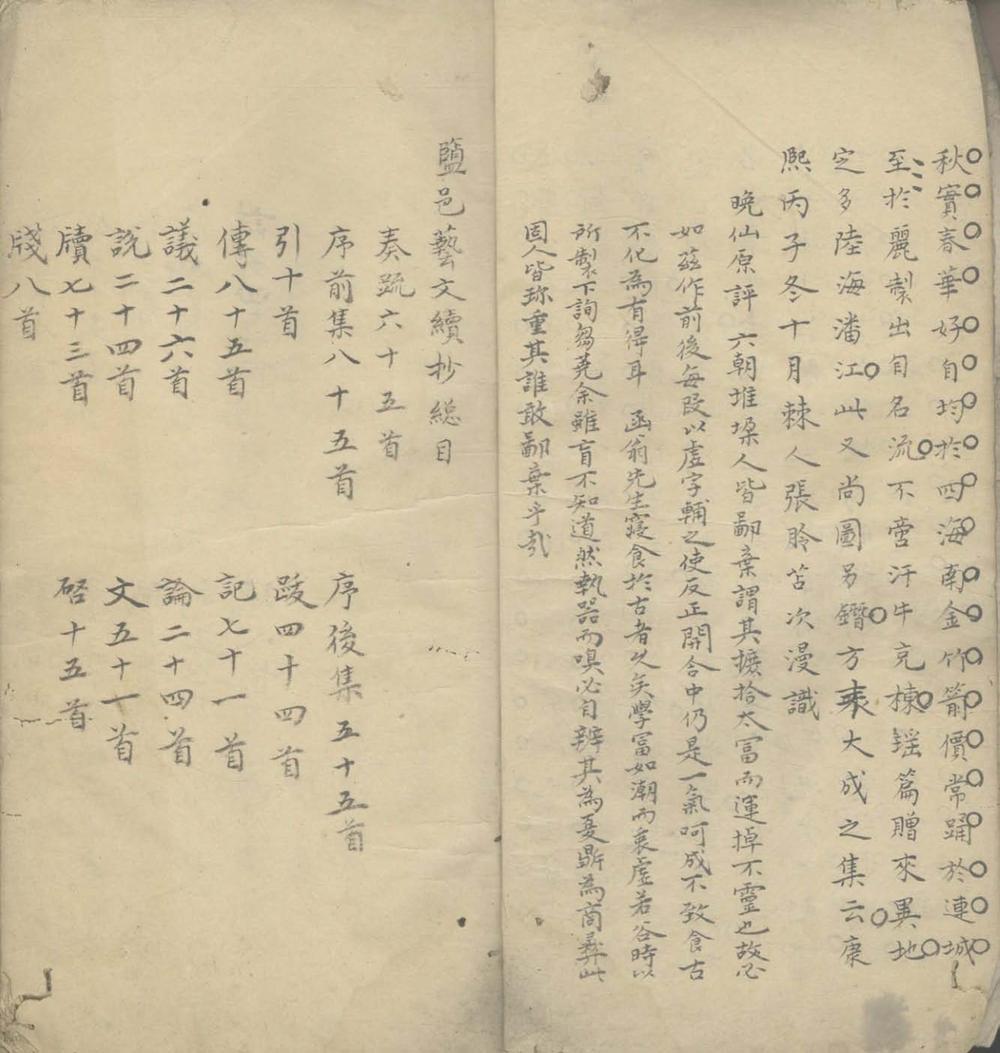 秋實春華好自均於四海南金竹箭價常踊於連城
至於麗製出自名流不啻汗牛充棟瑤篇贈來異地
定多陸海潘江此又尚圖另鐫方來大成之集云康
熙丙子冬十月棘人張聆苫次漫識
晚仙原評 六朝堆垛人皆鄙棄謂其摭拾太富而運掉不靈也故必
如茲作前後每段以虛字輔之使反正開合中仍是一氣呵成不致食古
不化為有得耳 函翁先生寢食於古者久矣學富如潮而衷虛若谷時以
所製下詢芻蕘余雖盲不知道然執器而嗅必自辨其為夏鼎為商彝此
固人皆珍重其誰敢鄙棄乎哉
鹽邑藝文續抄總目
奏疏六十五首
序前集八十五首 序後集五十五首
引十首 跋四十四首
傳八十五首 記七十一首
議二十六首 論二十四首
說二十四首 文五十一首
牘七十三首 啓十五首
牋八首